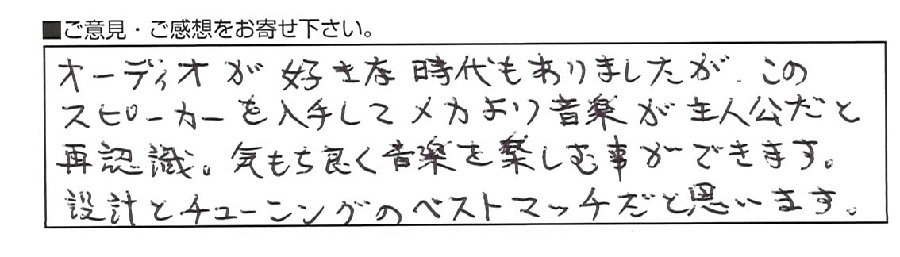 ■ご意見・ご感想をお寄せ下さい。
オーディオが好きな時代もありましたが、この
スピーカーを入手してメカより音楽が主人公だと
再認識。気もち良く音楽を楽しむ事ができます。
設計とチューニングのベストマッチだと思います。